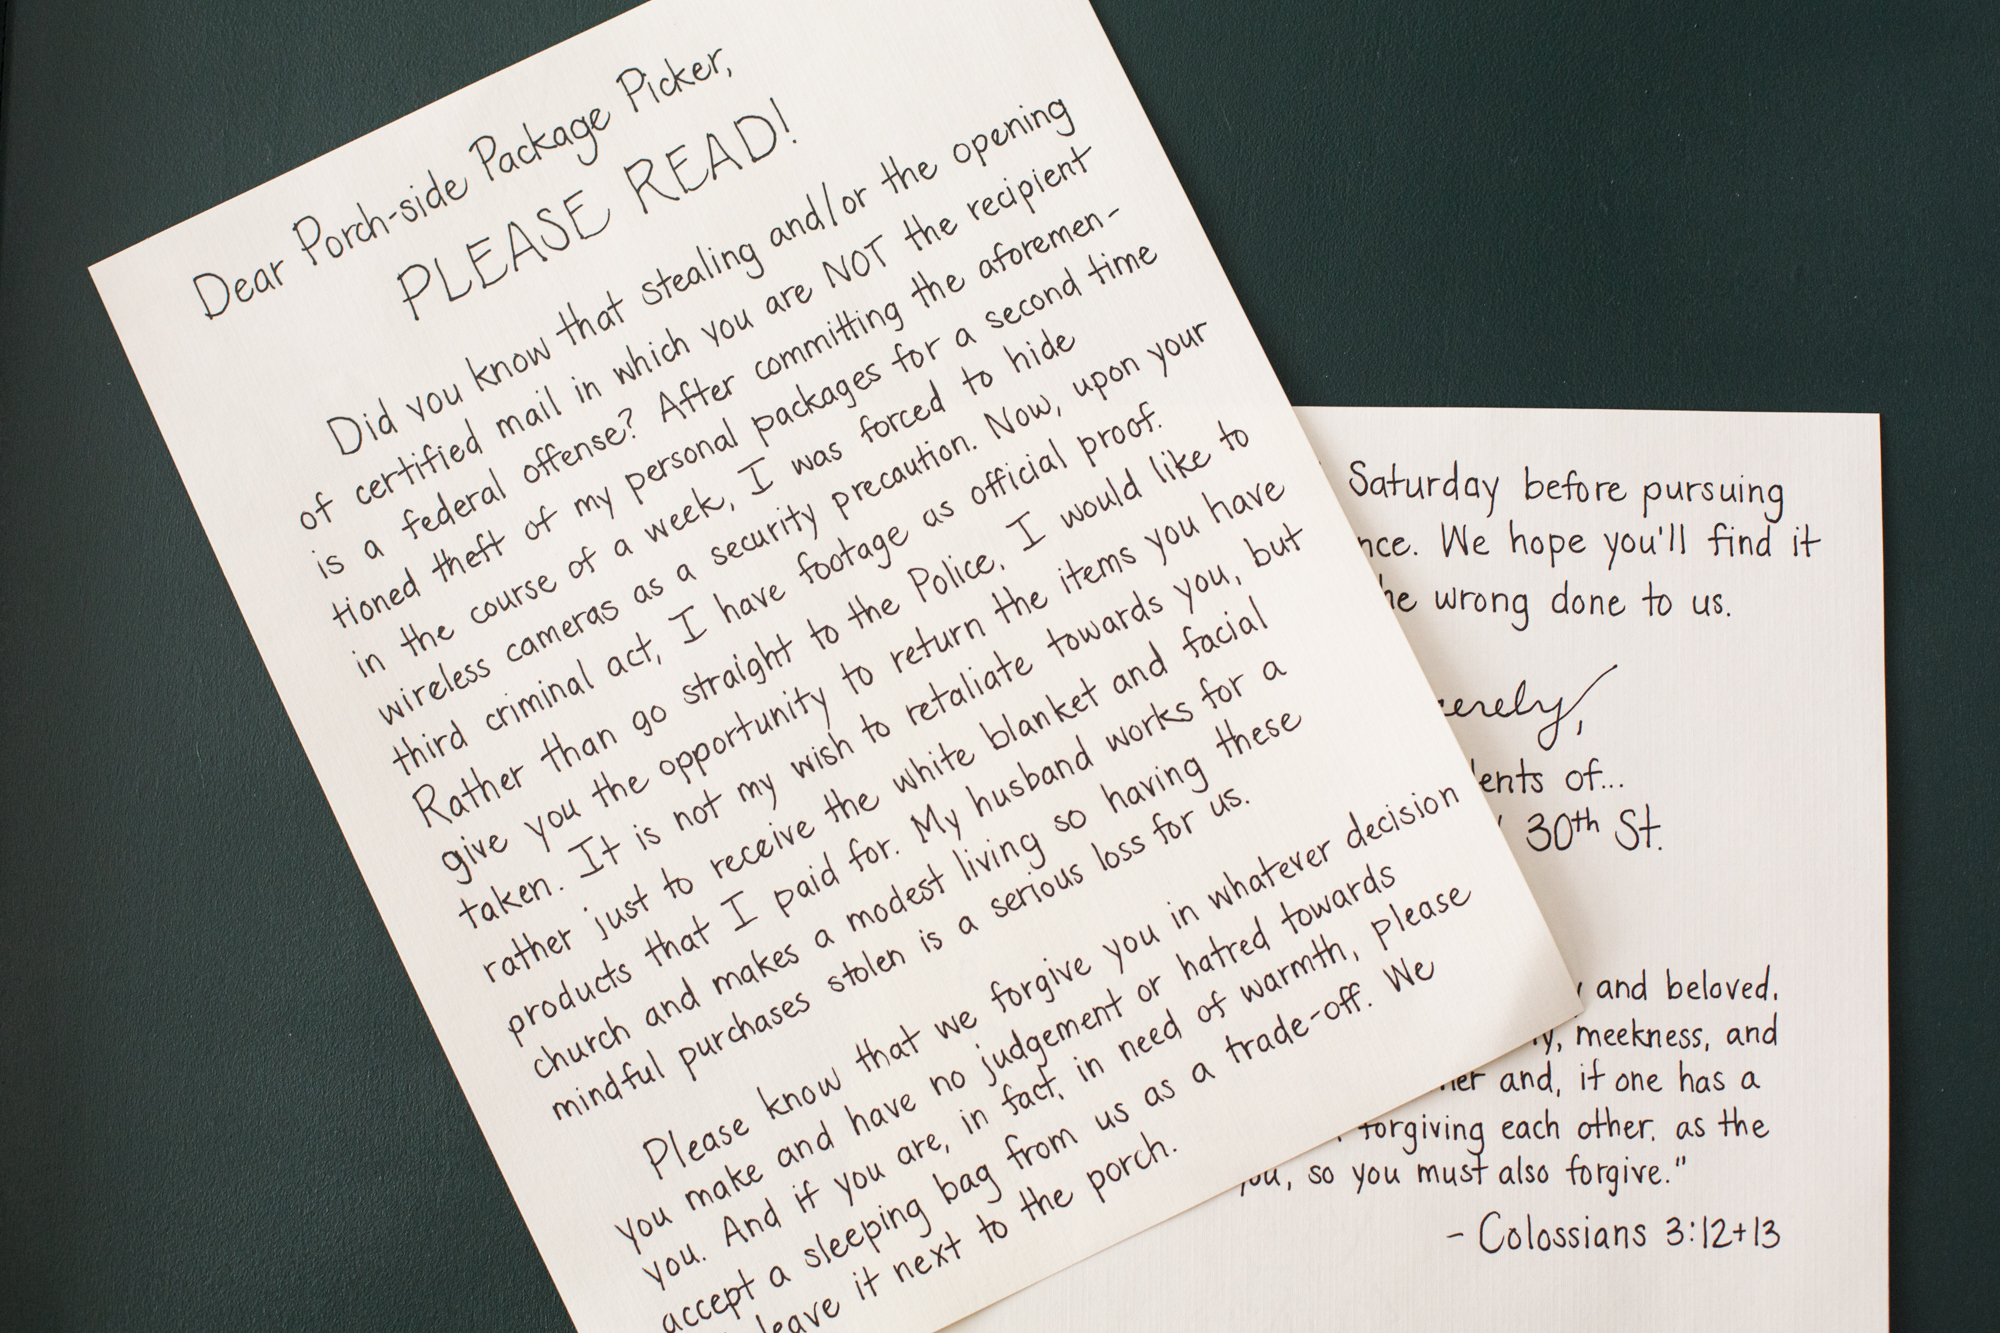 Dear Porch-side Package Picker,
PLEASE READ!
Did you know that stealing and/or the opening
of certified mail in which you are NOT the recipient
is a federal offense? After committing the aforemen-
tioned theft of my personal packages for a second time
in the course of a week, I was forced to hide
wireless cameras as a security precaution. Now, upon your
third criminal act, I have footage as official proof.
Rather than go straight to the Police, I would like to
give you the opportunity to return the items you have
taken. It is not my wish to retaliate towards you, but
rather just to receive the white blanket and facial
products that I paid for. My husband works for a
church and makes a modest living so having these
mindful purchases stolen is a serious loss for us.
Please know that we forgive you in whatever decision
you make and have no judgement or hatred towards
you. And if you are, in fact, in need of warmth, please
accept a sleeping bag from us as a trade-off. We
leave it next to the porch.
Saturday before pursuing
We hope you'll find it
wrong done to us.
of...
30th St.
and beloved,
meekness, and
and, if one has a
forgiving each other, as the
so you must also forgive."
- Colossians 3:12+13